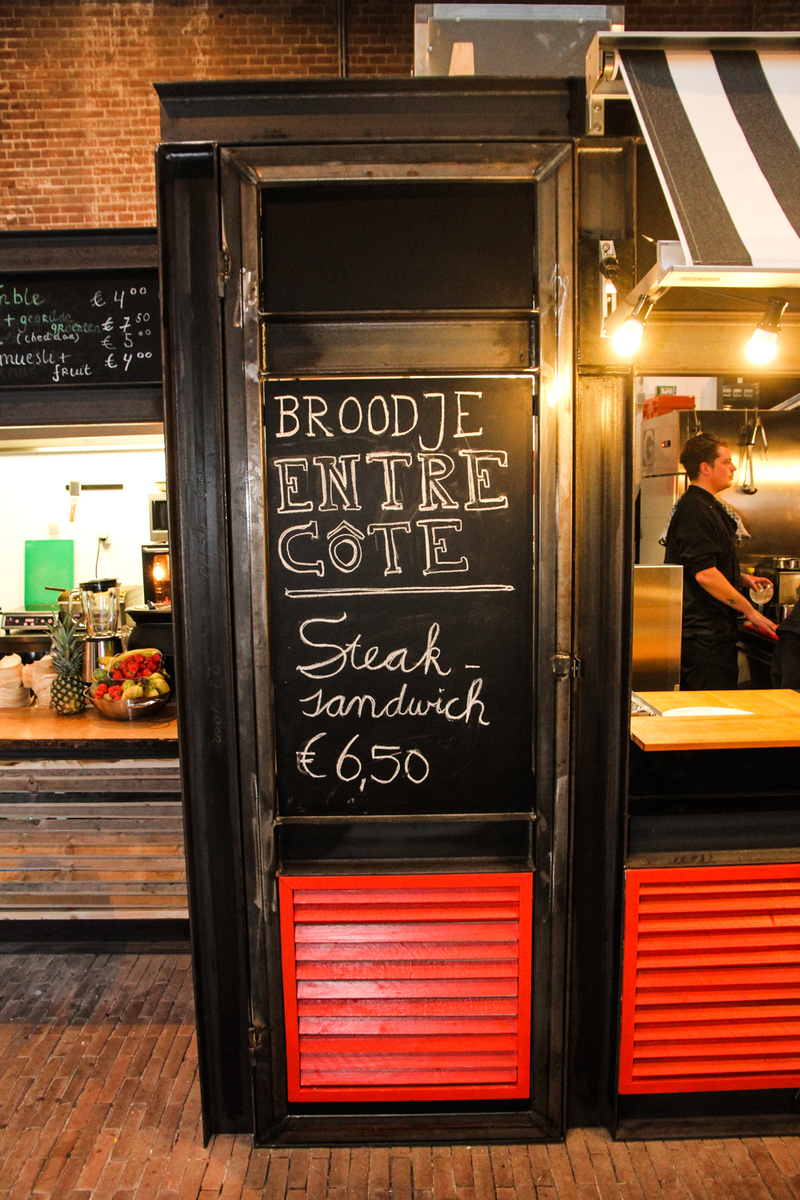 € 4⁰⁰
+ gegrilde
groenten € 7⁵⁰
(cheddar) € 5⁰⁰
muesli + € 4⁰⁰
fruit
BROODJE
ENTRE
CÔTE
Steak-
sandwich
€ 6,50